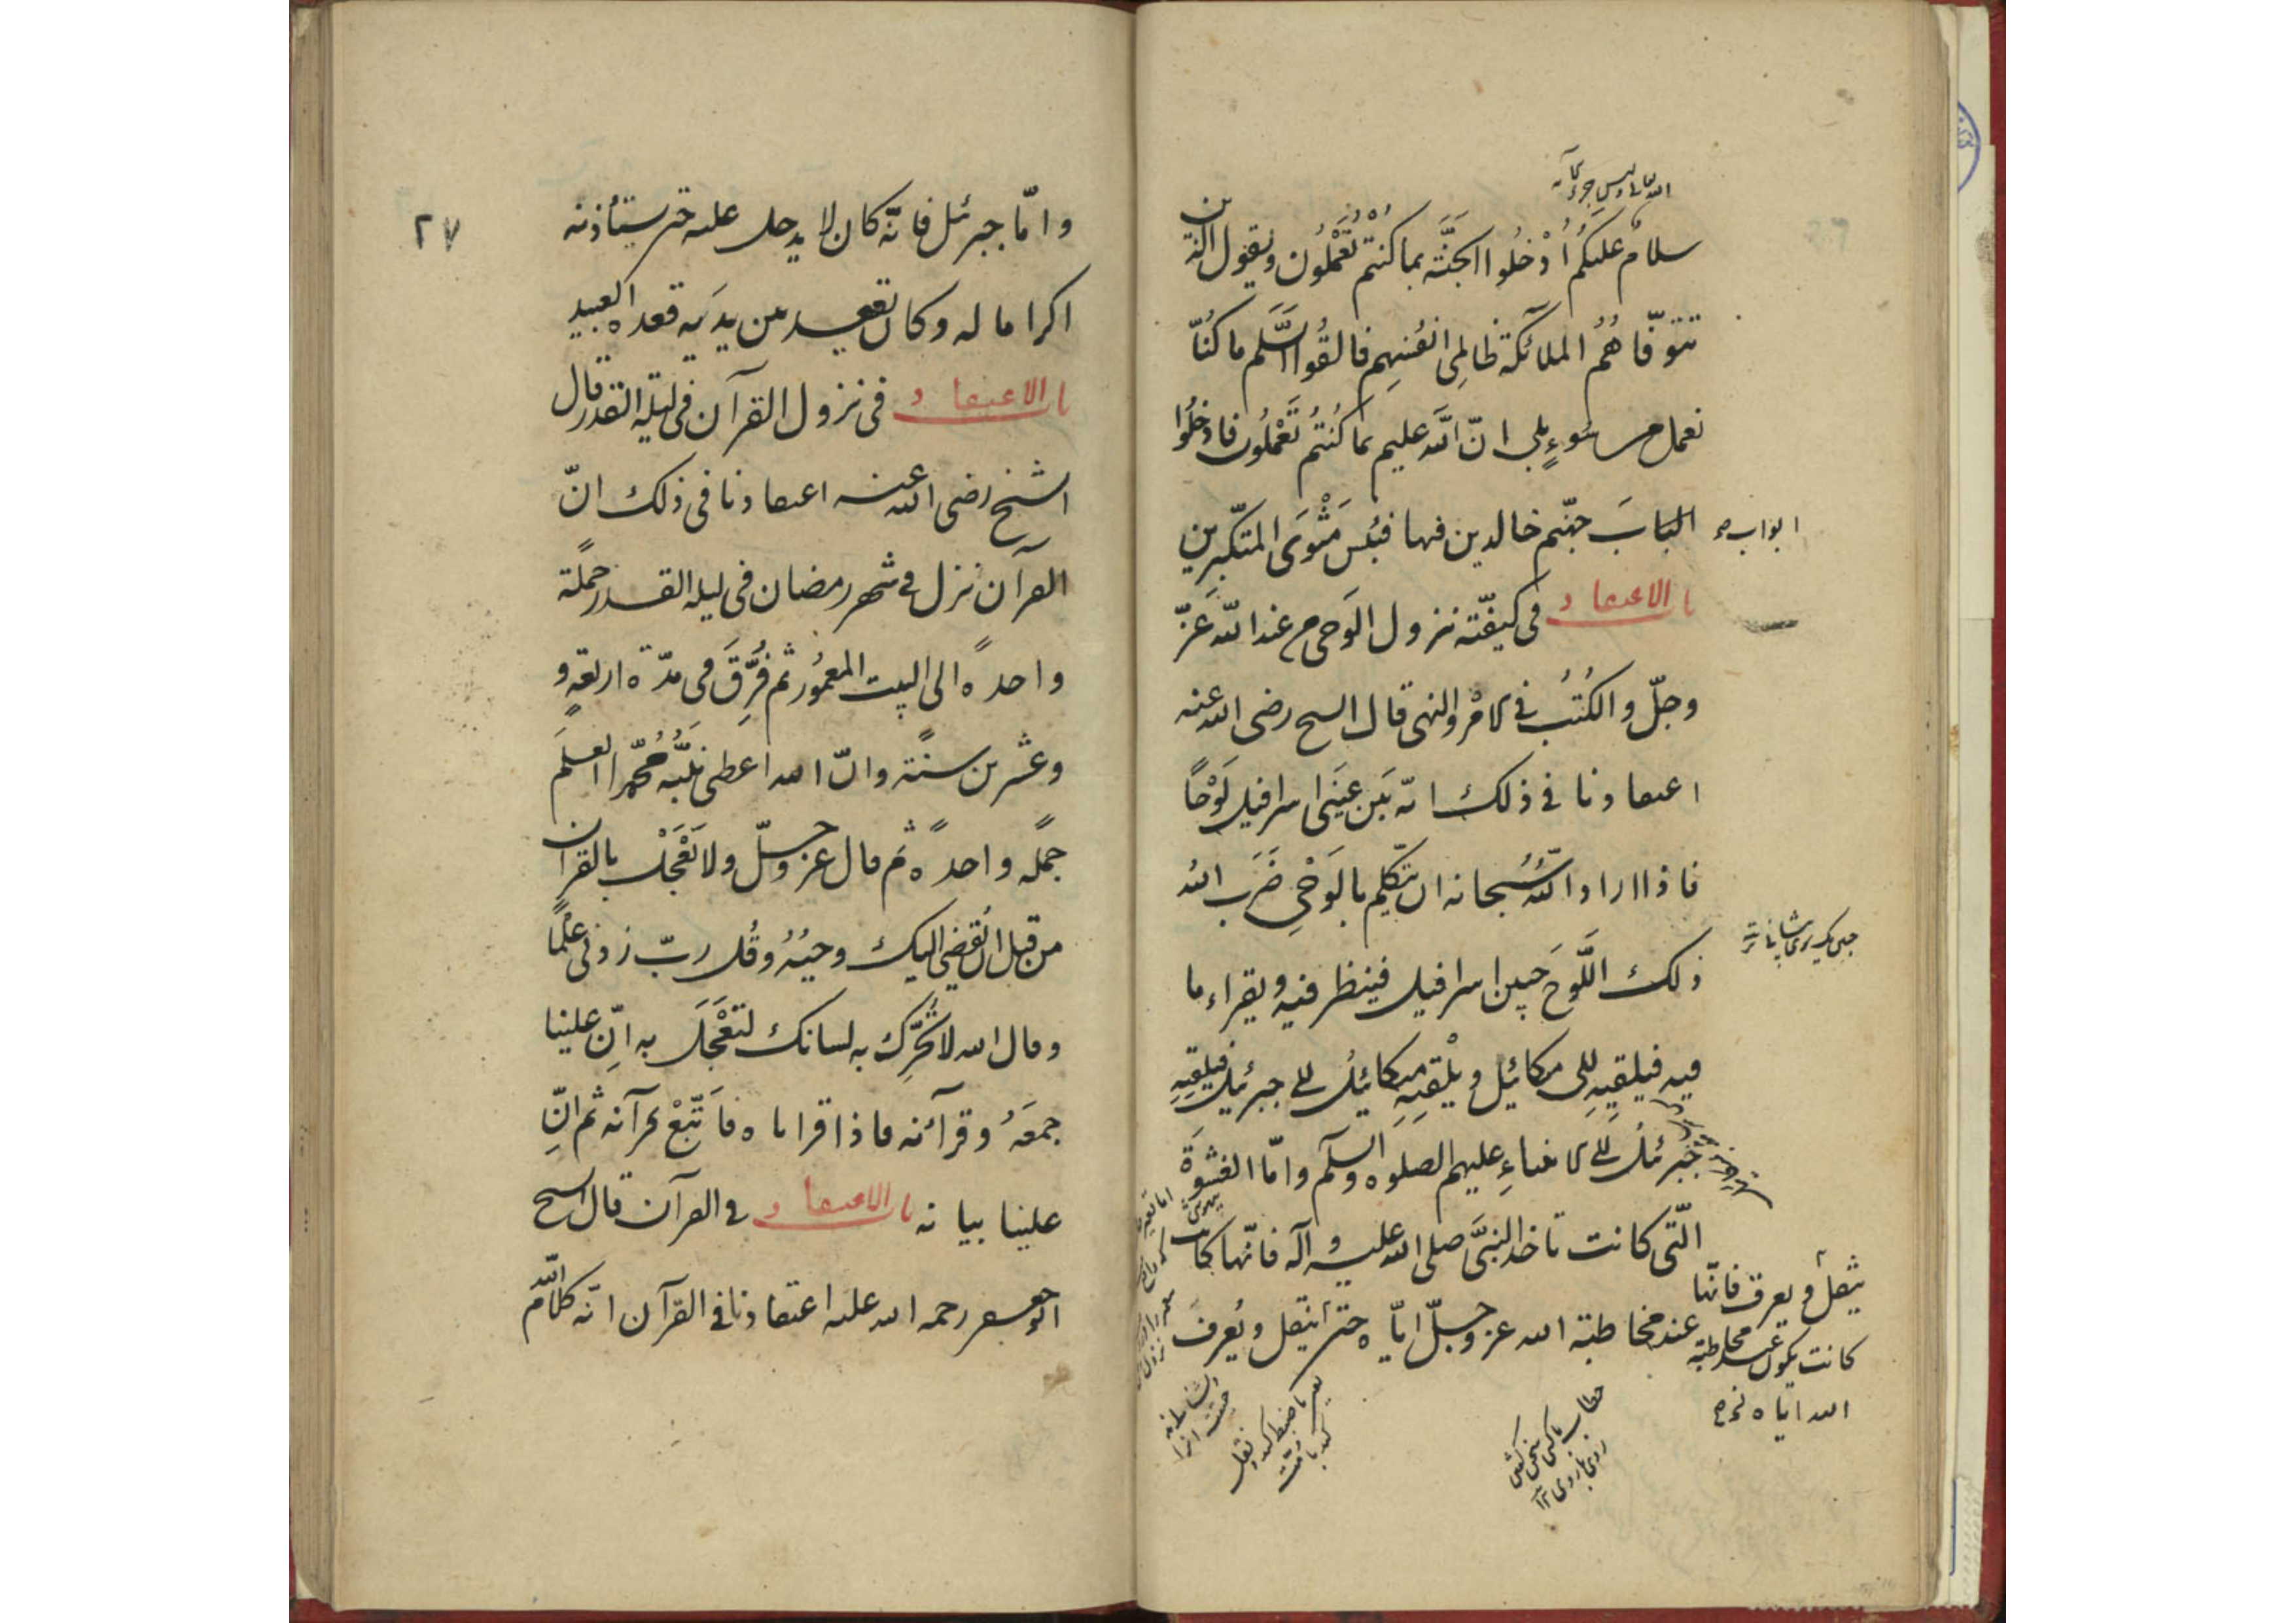 سلامٌ عليكُم اُدْخلُوا الجَنَّة بما كنتُم تَعْمَلُون ويقول الذين
تتوفّاهُمُ الملائكة ظالِمِى انفُسِهِم فالقُوا السَّلَم ما كنُّا
نعمل من سُوءٍ بلى انّ الله عليم بما كُنتُم تَعْمَلُون فادخُلُوا
البَابَ جهنّم خالدين فيها فبئسَ مَثْوَى المتكبِّرين
ابواب
باب الاعتقاد فى كيفيّة نزول الوَحى من عند الله عَزّ
وجلّ والكُتُبُ فى الامْر والنهى قال الشيخ رضى الله عنه
اعتقادنا فى ذلك انّه بَين عَينَى اسرافيل لَوْحًا
فاذا اراد اللّه سُبحانه ان يتكلّم بالوَحْىِ ضَرَب الله
ذلك اللَّوحَ جبين اسرافيل فينظر فيه ويقراء ما
فيه فيلقيهِ الى ميكائيل ويُلْقيِهِ ميكائيل الى جبرئيل فيلقيِهِ
جبرئيل الى الانبياءِ عليهم الصلوه والسلم وامّا الغشوَة
الّتى كانت تاخذ النبىَّ صلى الله عليه وآله فانّها كانت
عند مخاطبة الله عز وجلّ ايّاه حتى يثقل ويعرف
يثقل ويعرق فانّها
كانت يكون عند مخاطبة
الله ايّاه
٢٧
وامّا جبرئيل فانّه كان لا يدخل عليه حتى يستأذنه
اكراما له وكان يقعد بين يدَيه قعدة العبيد
باب الاعتقاد فى نزول القرآن فى ليلة القدر قال
الشيخ رضى الله عنه اعتقادنا فى ذلك انّ
القرآن نزل فى شهر رمضان فى ليلة القدر جملةً
واحدةً الى البيت المعمُور ثم فُرِّقَ فى مدّة اربعةٍ و
وعشرين سنةً وانّ الله اعطى نبيَّه محمّدا العلم
جملةً واحدةً ثم قال عز وجلّ ولا تَعْجَل بالقران
من قبل ان يُقضى اليك وحيُهُ وقُل ربّ زدنى عِلْمًا
وقال الله لا تُحرِّك به لسانك لتَعْجَلَ به اِنّ علينا
جمعَهُ وقرآنه فاذا قراناه فَاتّبِعْ قرآنه ثم اِنّ
علينا بيانه باب الاعتقاد فى القرآن قال الشيخ
ابوجعفر رحمه الله عليه اعتقادنا فى القرآن انّه كلامُ اللّه